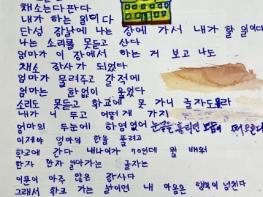 채소는 다 판다
내가 하는 일이다
단성 갈날에 장에 가서 내가 할 일이다
나는 소리를 못듣고 산다
엄마가 이 장에서 하는 거 보고 나도
채소 장사가 되었다
엄마가 물려주고 갈적에
엄마는 한없이 울었다
소리도 못듣고 학교에 못 가니 글자도 몰라
내가 니 두고 어떻게 가지
엄마의 두눈에 하염없이 눈물을 흘리던
이제야 엄마의 한을 풀려고
학교에 간다 내나이가 70인데 뭘 배워
한자 한자 알아가는 글자는
이문이 아주 많은 장사다
그래서 학교 가는 날이면 내 마음은 행복이 넘친다